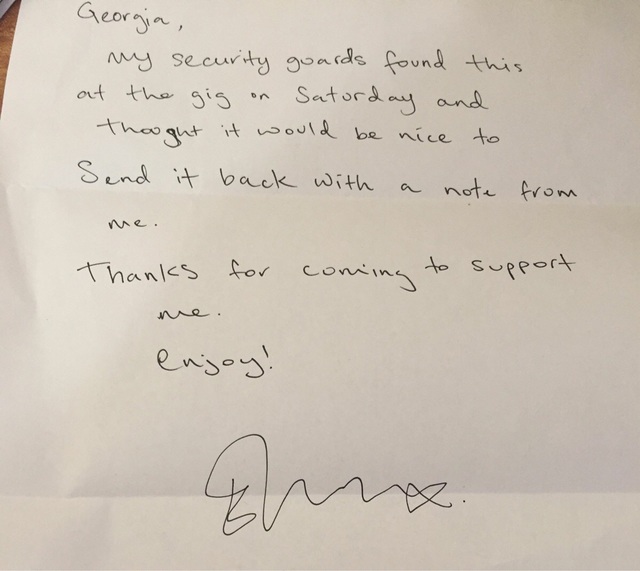 Georgia,
My security guards found this
at the gig on Saturday and
thought it would be nice to
Send it back with a note from
me.
Thanks for coming to support
me.
enjoy!